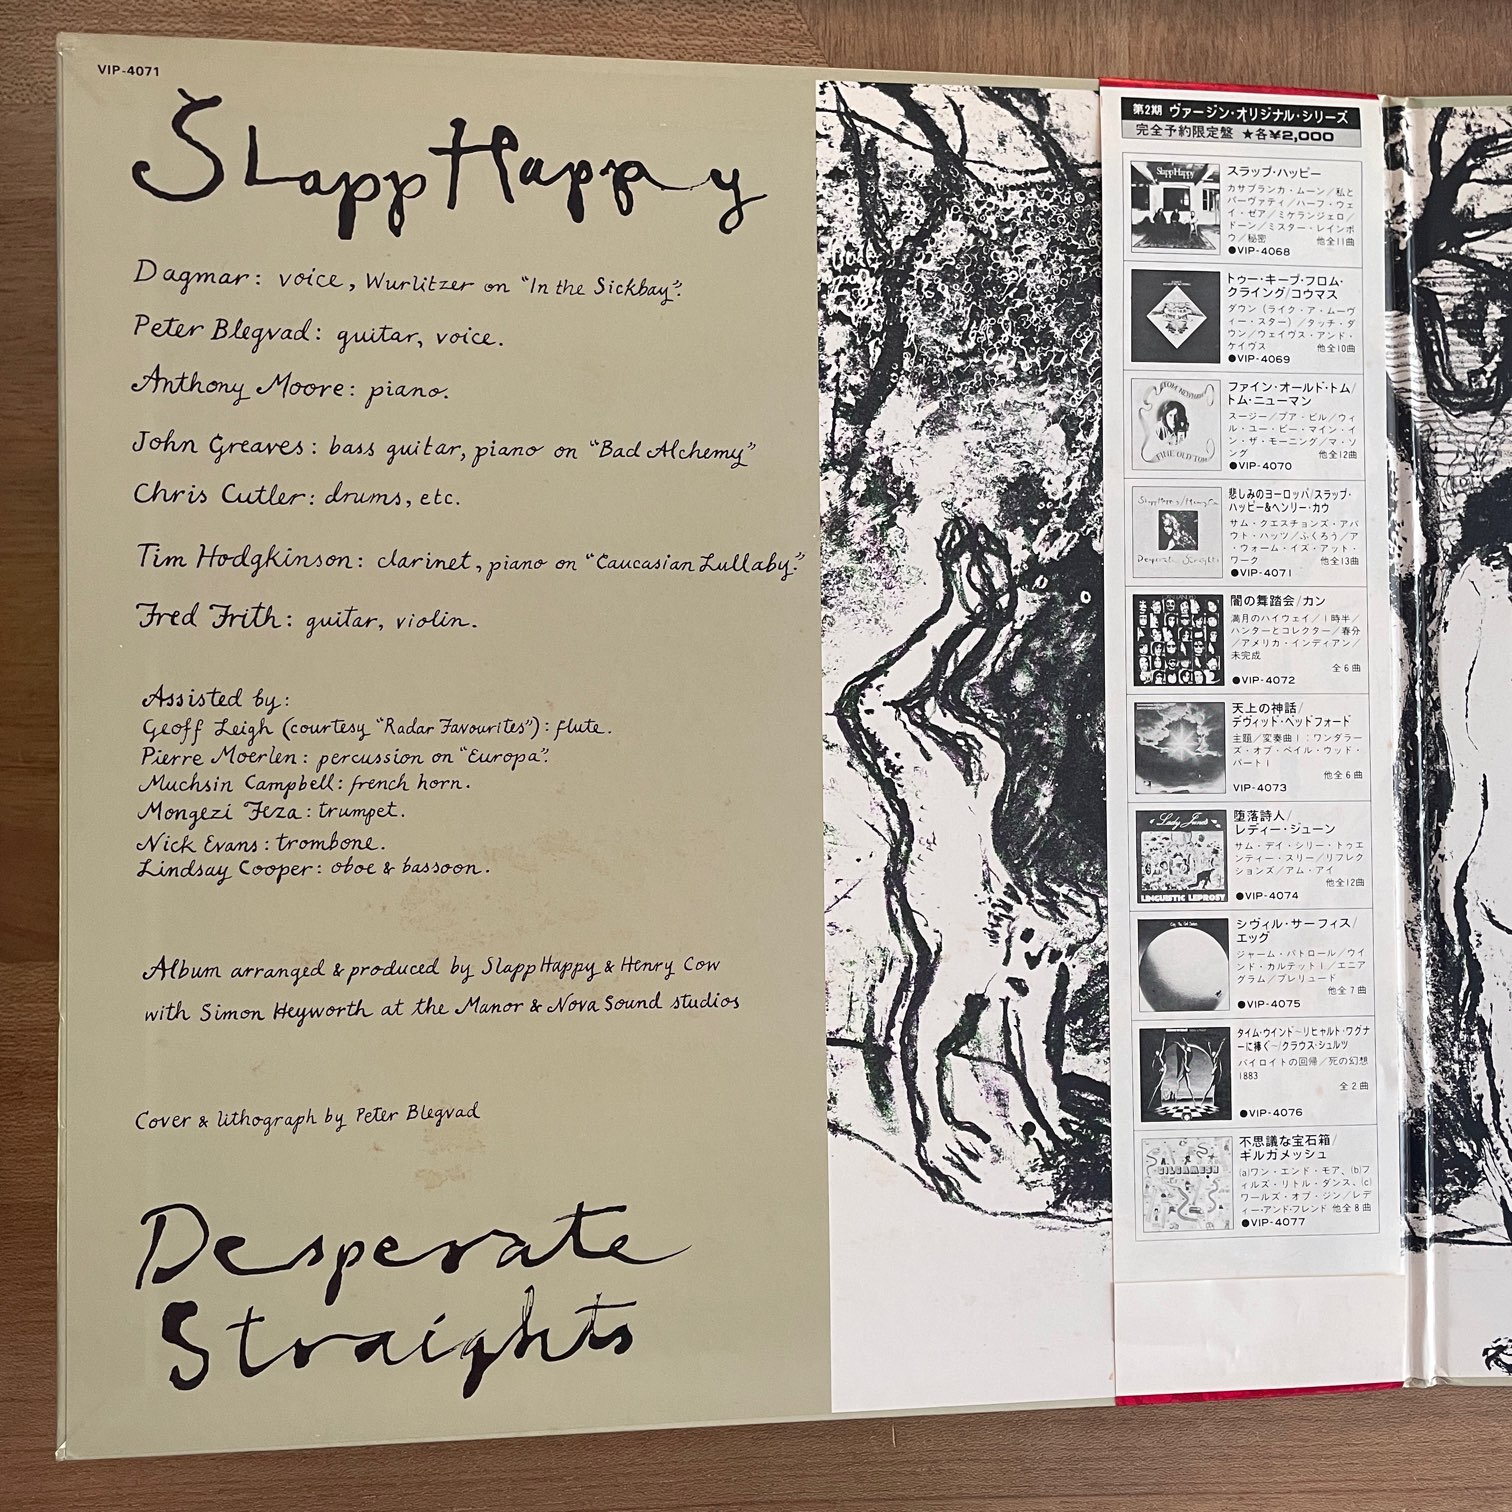 VIP-4071
Slapp Happy
Dagmar: voice, Wurlitzer on "In the Sickbay".
Peter Blegvad: guitar, voice.
Anthony Moore: piano.
John Greaves: bass guitar, piano on "Bad Alchemy"
Chris Cutler: drums, etc.
Tim Hodgkinson: clarinet, piano on "Caucasian Lullaby."
Fred Frith: guitar, violin.
Assisted by:
Geoff Leigh (courtesy "Radar Favourites"): flute.
Pierre Moerlen: percussion on "Europa".
Muchsin Campbell: french horn.
Mongezi Feza: trumpet.
Nick Evans: trombone.
Lindsay Cooper: oboe & bassoon.
Album arranged & produced by Slapp Happy & Henry Cow
with Simon Heyworth at the Manor & Nova Sound studios
Cover & lithograph by Peter Blegvad
Desperate
Straights
第2期 ヴァージン・オリジナル・シリーズ
完全予約限定盤 ★各¥2,000
Slapp Happy
スラップ・ハッピー
カサブランカ・ムーン／私と
パーヴァティ／ハーフ・ウェ
イ・ゼア／ミケランジェロ／
ドーン／ミスター・レインボ
ウ／秘密 他全11曲
●VIP-4068
トゥー・キープ・フロム・
クライング/コウマス
ダウン（ライク・ア・ムーヴ
ィー・スター）／タッチ・ダ
ウン／ウェイヴス・アンド・
ケイヴス 他全10曲
●VIP-4069
FINE OLD TOM
ファイン・オールド・トム/
トム・ニューマン
スージー／プア・ビル／ウィ
ル・ユー・ビー・マイン・イ
ン・ザ・モーニング／マ・ソ
ング 他全12曲
●VIP-4070
Slapp Happy/Henry Cow
Desperate Straights
悲しみのヨーロッパ/スラップ・
ハッピー&ヘンリー・カウ
サム・クエスチョンズ・アバ
ウト・ハッツ／ふくろう／ア
・ウォーム・イズ・アット・
ワーク 他全13曲
●VIP-4071
闇の舞踏会/カン
満月のハイウェイ／1時半／
ハンターとコレクター／春分
／アメリカ・インディアン／
未完成
全6曲
●VIP-4072
天上の神話/
デヴィッド・ベッドフォード
主題／変奏曲Ⅰ：ワンダラー
ズ・オブ・ペイル・ウッド・
パートⅠ
他全6曲
VIP-4073
Lady June's
LINGUISTIC LEPROSY
堕落詩人/
レディー・ジューン
サム・デイ・シリー・トゥエ
ンティー・スリー／リフレク
ションズ／アム・アイ
他全12曲
●VIP-4074
シヴィル・サーフィス/
エッグ
ジャーム・パトロール／ウイ
ンド・カルテットⅠ／エニア
グラム／プレリュード
他全7曲
●VIP-4075
タイム・ウインド～リヒャルト・ワグナ
ーに捧ぐ～/クラウス・シュルツ
バイロイトの回帰／死の幻想
1883
全2曲
●VIP-4076
GILGAMESH
不思議な宝石箱/
ギルガメッシュ
(a)ワン・エンド・モア、(b)フ
ィルズ・リトル・ダンス、(c)
ワールズ・オブ・ジン／レデ
ィー・アンド・フレンド 他全8曲
●VIP-4077